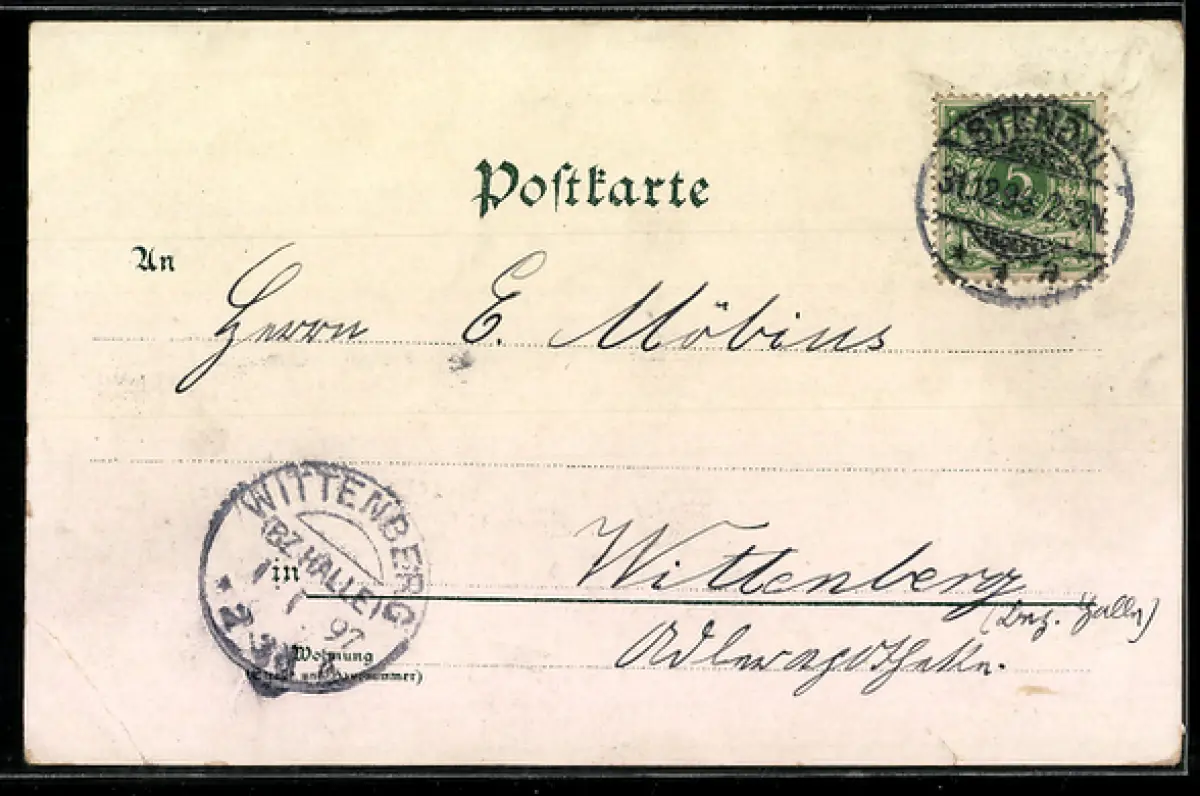 Postkarte
STENDAL
5
31.12.96 2-3N
An
Herrn E. Möbius
WITTENBERG
(BZ. HALLE)
1 1 97
in
Wittenberg
(Bez. Halle)
Wohnung
(Straße und Hausnummer)
Adlerapotheke.